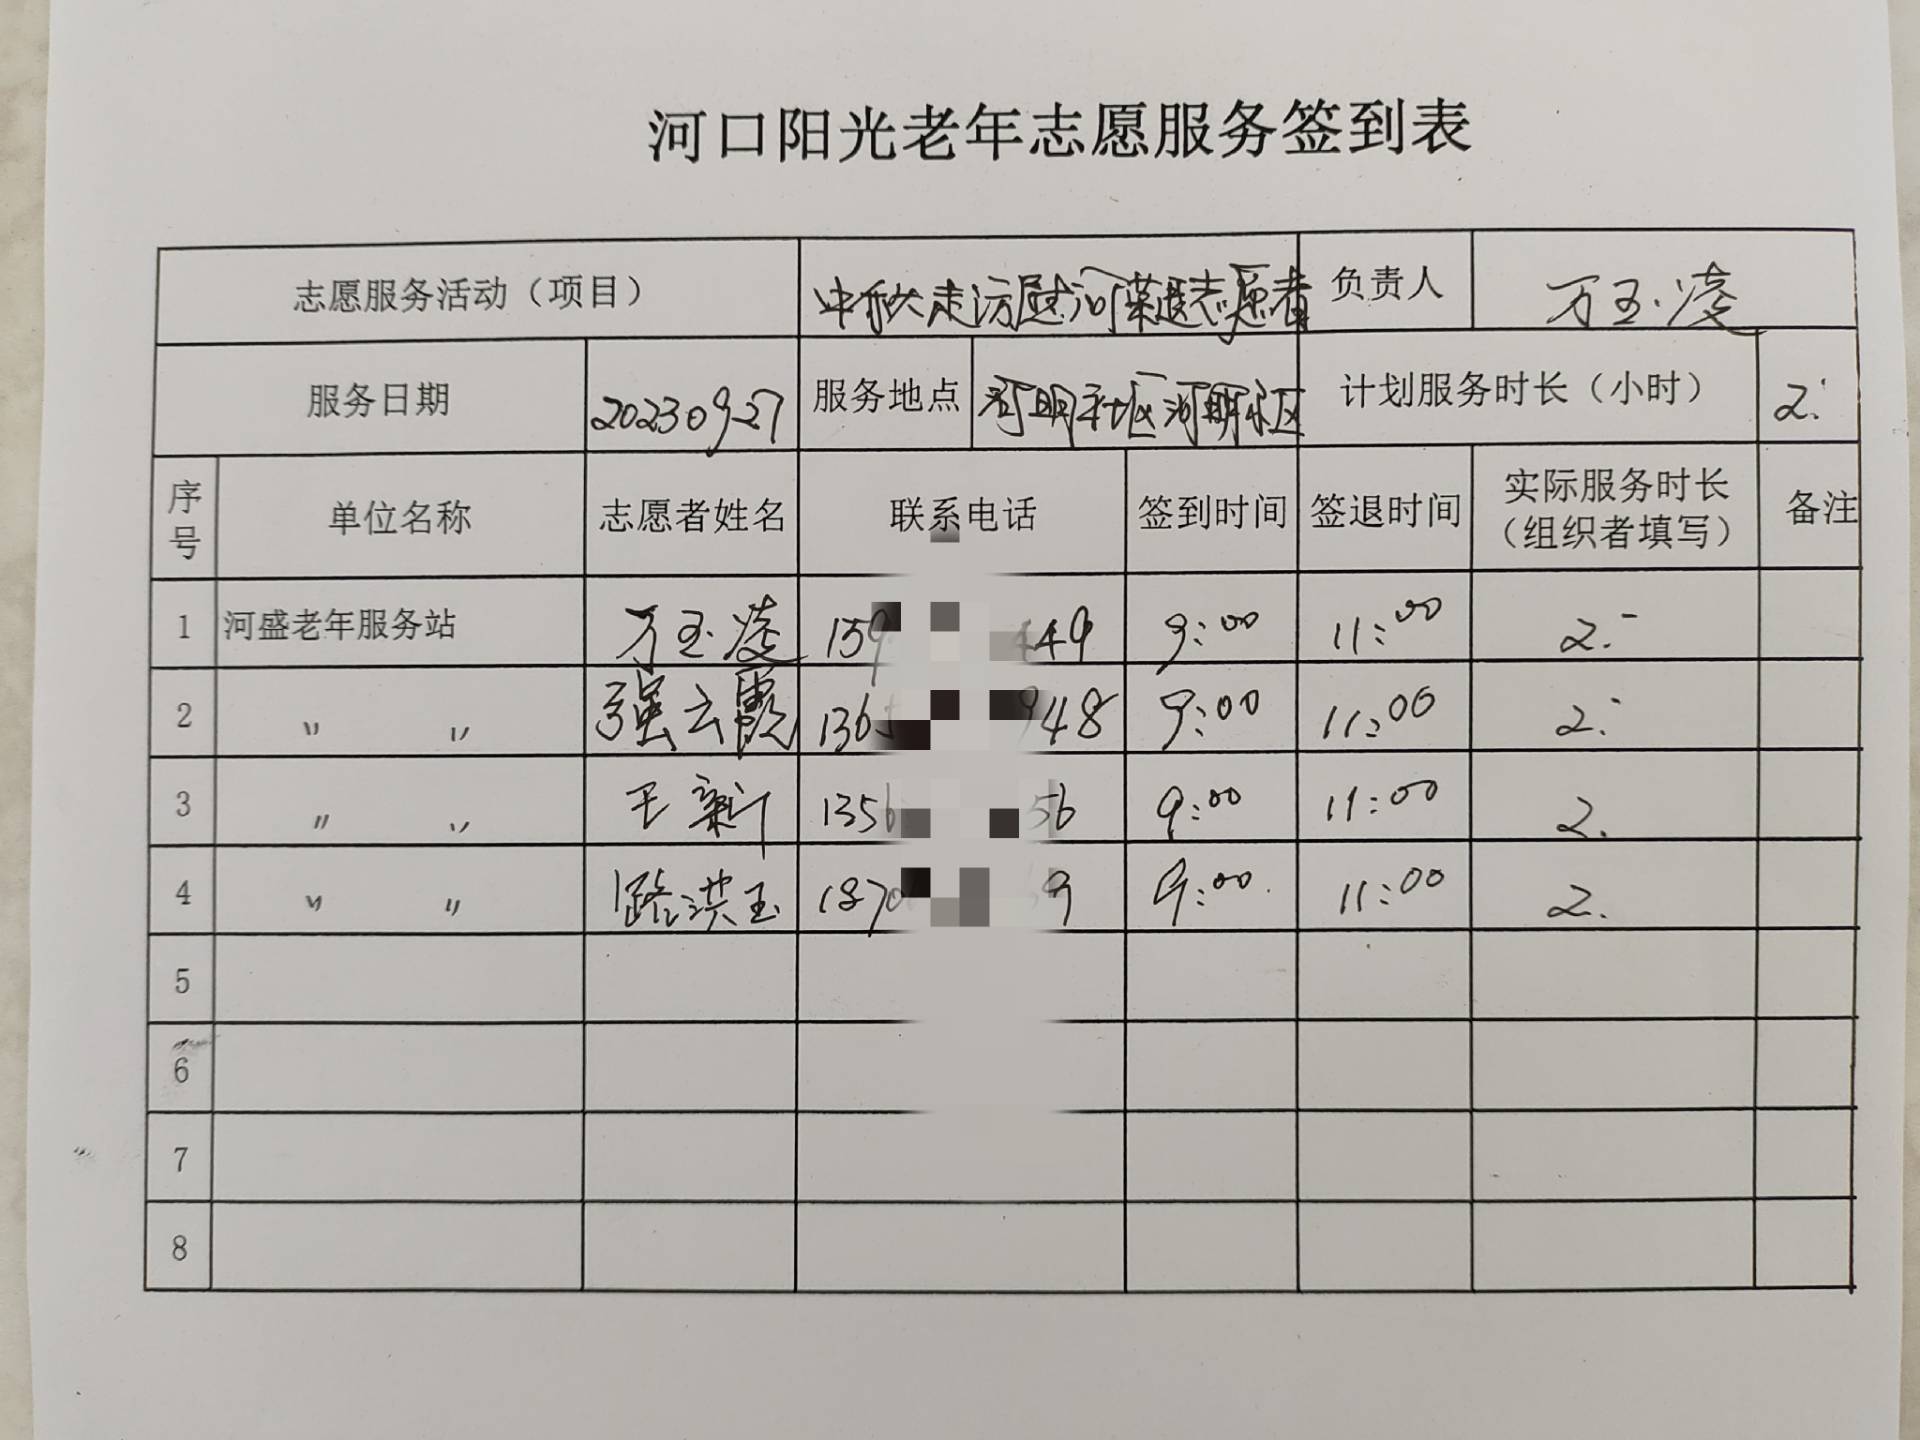 河口阳光老年志愿服务签到表
志愿服务活动（项目） 中秋走访慰河荣退志愿者 负责人 万玉凌
服务日期 20230927 服务地点 河明社区河明小区 计划服务时长（小时） 2.
序号 单位名称 志愿者姓名 联系电话 签到时间 签退时间 实际服务时长（组织者填写） 备注
1 河盛老年服务站 万玉凌 159 449 9:00 11:00 2.
2 〃 〃 强云霞 1365 948 9:00 11:00 2.
3 〃 〃 王新 1356 56 9:00 11:00 2.
4 〃 〃 路洪玉 1870 9 9:00 11:00 2.
5
6
7
8